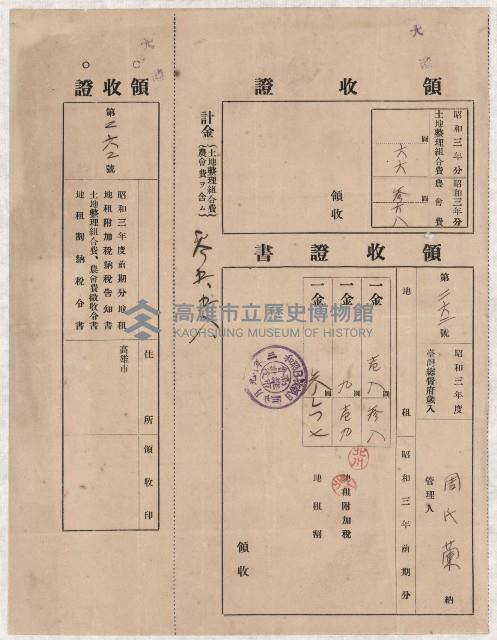 大港
領收證
昭和三年分
土地整理組合費
圓
六六
昭和三年分
農會費
圓
參六八
領收
計金
土地整理組合費
農會費ヲ含ム
領收證書
第二六二號
昭和三年度
臺灣總督府歲入
管理人
周氏蘭
納
地租
昭和三年前期分
一金
圓
壹八參八
一金
圓
九壹九
地租附加稅
一金
圓
地租割
領收
大港
領收證
第二六二號
昭和三年度前期分地租
地租附加稅納稅告知書
土地整理組合費、農會費徵收令書
地租割納稅令書
高雄市
住所
領收印
高雄市立歷史博物館
KAOHSIUNG MUSEUM OF HISTORY